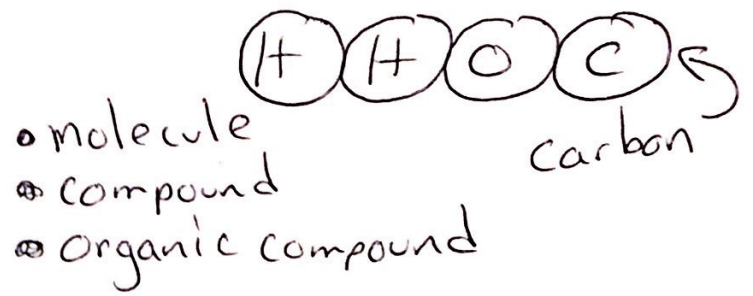 H H O C
carbon
• molecule
• compound
• organic compound